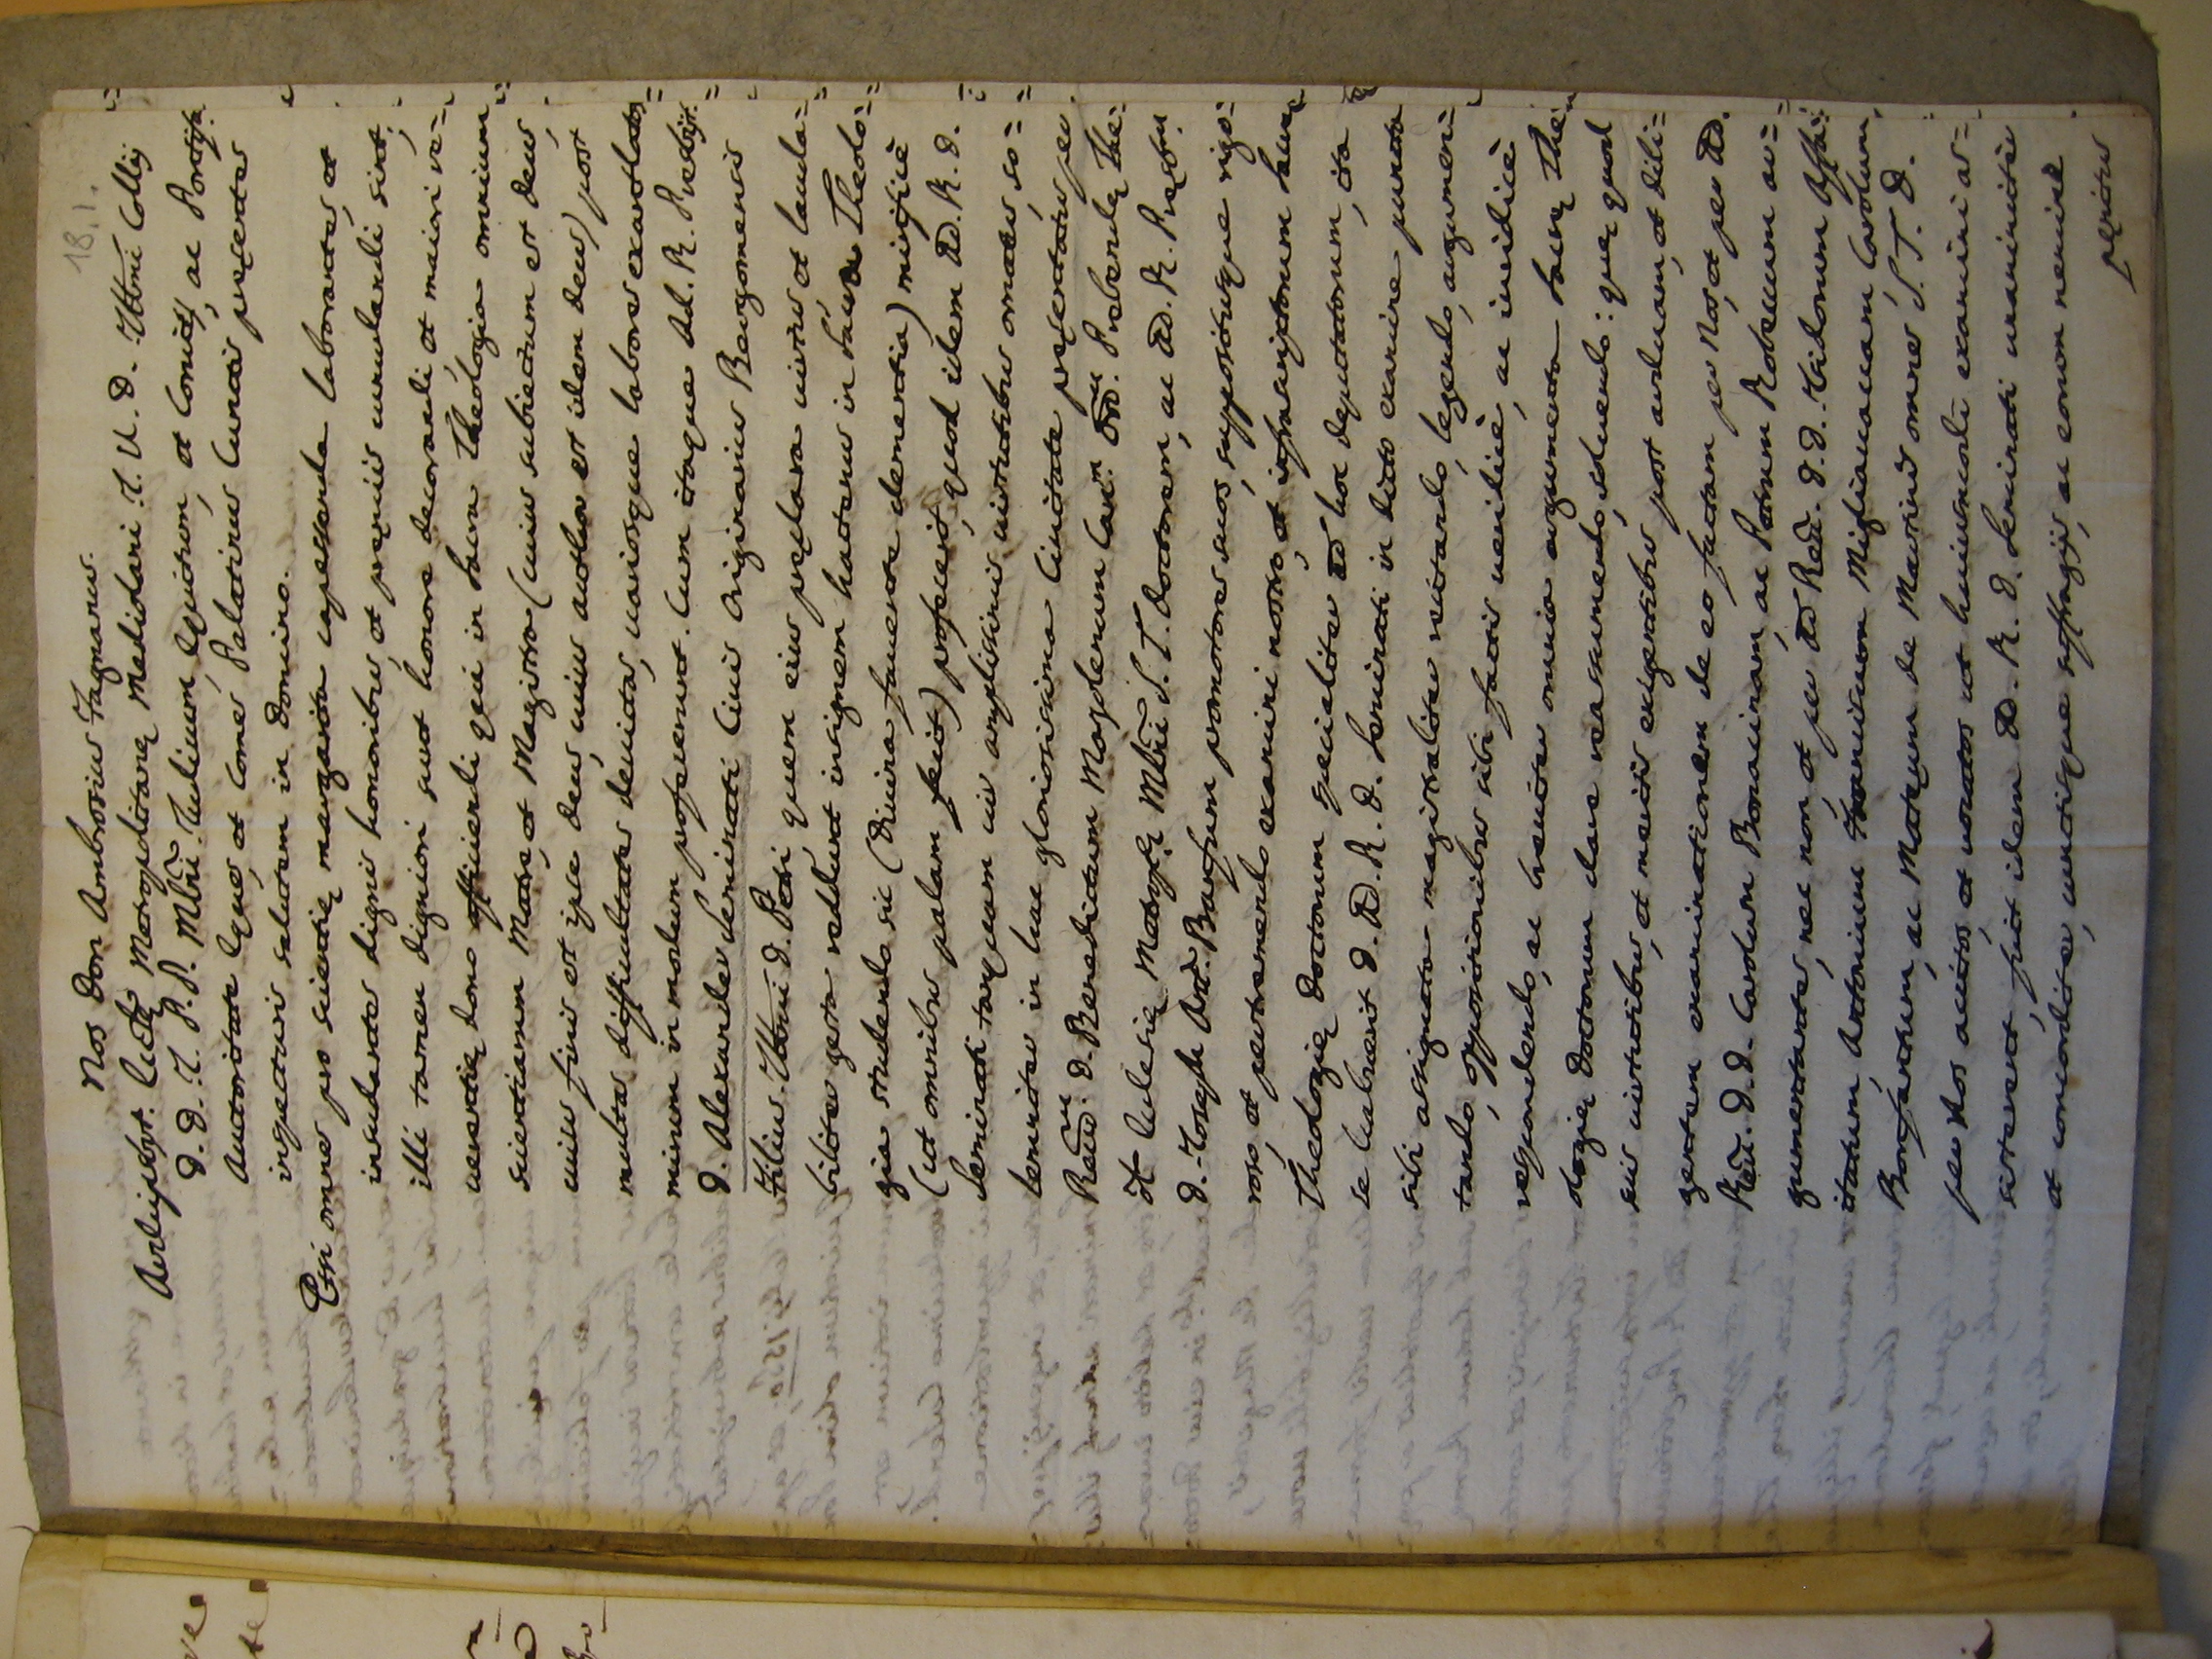 18,1.
Nos Don Ambrosius Fagnanus
Archipresbr. Eccle Metropolitanę Mediolani I. U. D. Ill:mi Collij
D. D. I. P. P. Mlni. Iulium, Equitum, et Comitũ, ac Pontifa.
Auctoritate Eques, et Comes Palatinus Cunctis presentes
inspecturis salutem in Domino.
Etsi omnes pro scientię margarita capessenda laborantes, et
insudantes dignis honoribus, et premijs cumulandi sint,
illi tamen digniori sunt honore decorandi, et maiori re=
uerentię dono afficiendi qui in Sacra Theologia omnium
scientiarum Matre, et Magistra (cuius subiectum est Deus,
cuius finis est ipse Deus, cuius author est idem Deus) post
multas difficultates deuictas, uariosque labores exantlatos
mirum in modum profecerunt. Cum itaque Ad. R. Presbyt.
D. Alexander Seminati Ciuis Originarius Bergomensis
Filius D. Petri, quem eius preclara uirtus, et lauda=
biliter gesta reddunt insignem hactenus in Sacra Theolo=
gia studendo sic (Diuina fauente clementia) mirificè
(ut omnibus palam fuit) profecerit, quod idem AD. R. D.
Seminati tanquam uir amplissimis uirtutibus ornatus, so=
lemniter in hac gloriosissima Ciuitate presentatus per
Red:m D. Benedictum Mapelenum Can:m Ord:m Prebendę The:
Ecclesię Metropolę Mlni S. T. Doctorem, ac AD. R. Presbm
D. Ioseph Ant. promotores suos, suppositusque rigo=
roso, et pertremendo examini nostro, et infrascriptorum Sacrę
Theologię Doctorum specialiter ad hoc deputatorum, ita
se habuerit D. AD. R. D. Seminati in dicto examine puncta
sibi assignata magistraliter recitando, legendo, argumen=
tando, oppositionibus sibi factis ueridicè, ac iuridicè
respondendo, ac breuiter omnia argumenta Sacrę Theo
logię Doctorum clare reassumendo, soluendo: quę quod
suis uirtutibus, et meritis exigentibus post arduam, et dili=
gentem examinationem de eo factam per Nos, et per AD.
Red. D. D. Carolum Bonacinam, ac Petrum ar=
gumentantes, nec non, et per AD Red. D. D.
Antonium Franciscum Carolum
ac Matheum de Maxinis omnes S. T. D.
per Nos accitos, et uocatos ut huiusmodi examini as=
sisterent, fuit idem D. R. D. Seminati unanimiter
et concorditer, cunctisque suffragijs, ac eorum nemine
penitus